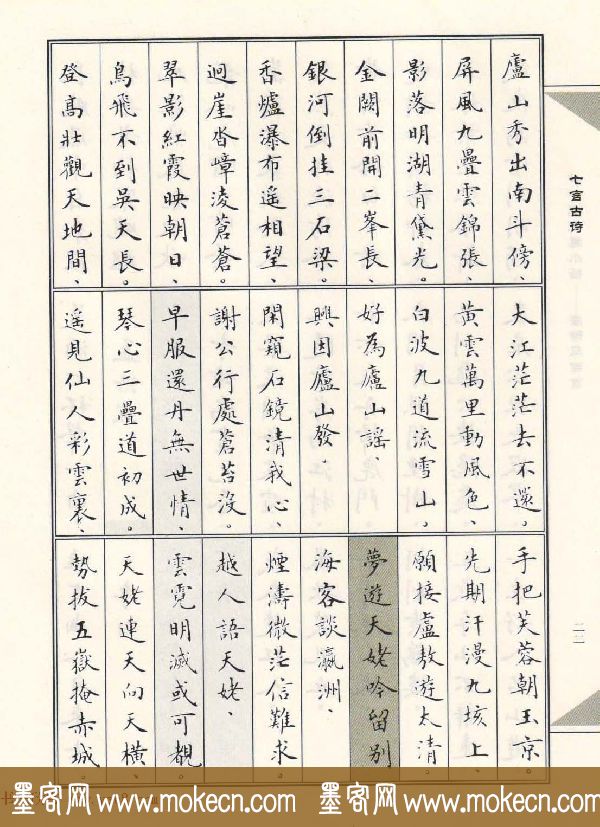 七言古诗
廬山秀出南斗傍、
屏風九疊雲錦張、
影落明湖青黛光。
金闕前開二峯長、
銀河倒挂三石梁。
香爐瀑布遥相望、
迴崖沓嶂淩蒼蒼。
翠影紅霞映朝日、
鳥飛不到吳天長。
登高壯觀天地間、
大江茫茫去不還。
黃雲萬里動風色、
白波九道流雪山。
好為廬山謠、
興因廬山發、
閑窺石鏡清我心、
謝公行處蒼苔没。
早服還丹無世情、
琴心三疊道初成。
遥見仙人彩雲裏、
手把芙蓉朝玉京。
先期汗漫九垓上、
願接盧敖遊太清。
夢遊天姥吟留别
海客談瀛洲、
煙濤微茫信難求。
越人語天姥、
雲霓明滅或可覩。
天姥連天向天橫、
勢拔五嶽掩赤城。
墨客网 www.mokecn.com 墨客网 www.mokecn.com